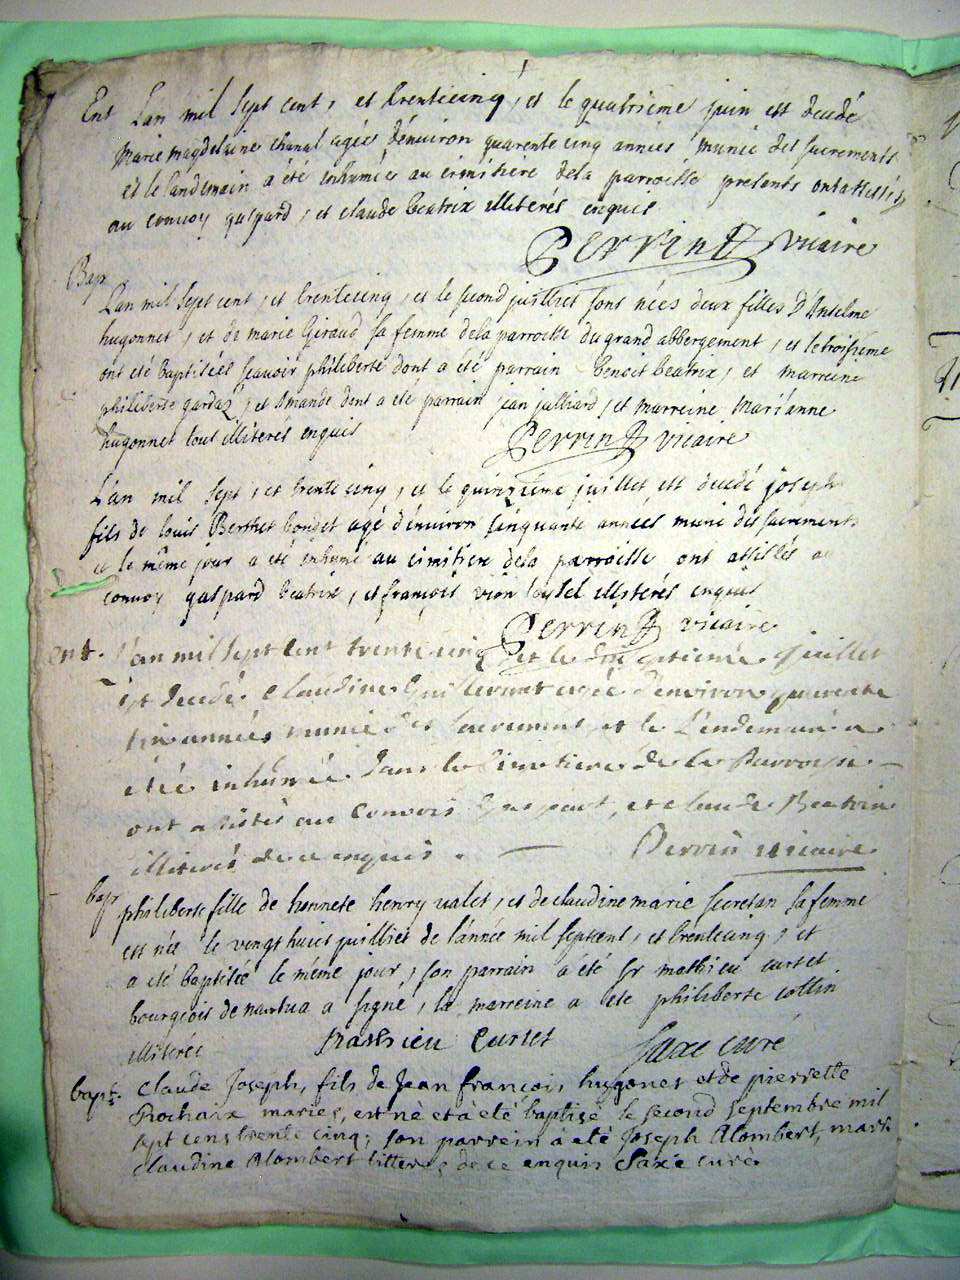 Ent L'an mil sept cent, et trentecinq, et le quatrieme juin est decedé
Marie magdelaine chanal agée d'environ quarentecinq années munie des sacrements
et le landemain a été inhumée au cimitiere dela parroisse presents ont assistés
au convoy gaspard, et claude Beatrix illiterés enquis
Perrin vicaire
Bap
L'an mil sept cent, et trentecinq, et le second juilliet sont nées deux filles d'Anselme
hugonnet, et de marie Giraud sa femme dela parroisse du grand abbergement, et le troisieme
ont été baptisées scavoir philiberte dont a été parrain Benoit Beatrix, et marreine
philiberte gardaz, et Amande dont a été parrain jean julliard, et marreine marianne
hugonnet tous illiteres enquis Perrin vicaire
L'an mil sept, et trentecinq, et le quinzieme juillet est decedé joseph
fils de louis Berthet bondet agé d'environ cinquante années muni des sacrements
et le même jour a été inhumé au cimitiere dela parroisse ont assistés au
convoy gaspard beatrix, et françois vion illiterés enquis
Perrin vicaire
ent. L'an mil sept cent trente cinq et le dix juillet
est decedé claudine Guillermet agée d'environ quarente
cinq années munie des sacrements et le lendemain a
étée inhumée dans le cimetiere de la Parroisse
ont assistés au convois Gaspard, et claude Beatrix
illiterés de ce enquis. Perrin vicaire
bapt philiberte fille de honnete henry valet, et de claudine marie secretan sa femme
est née le vengt huict juilliet de l'année mil septcent, et trentecinq, et
a été baptisée le même jour, son parrain a été sr mathieu curtet
bourgeois de nantua a signé, la marreine a été philiberte collin
illiteree Mathieu Curtet Saxe curé
bapt. claude Joseph, fils de Jean françois hugonet et de pierrette
Rochaix maries, est né et à été baptisé le second septembre mil
sept cens trente cinq; son parrein à été Joseph Alombert, mare
claudine Alombert litteres de ce enquis Saxe curé